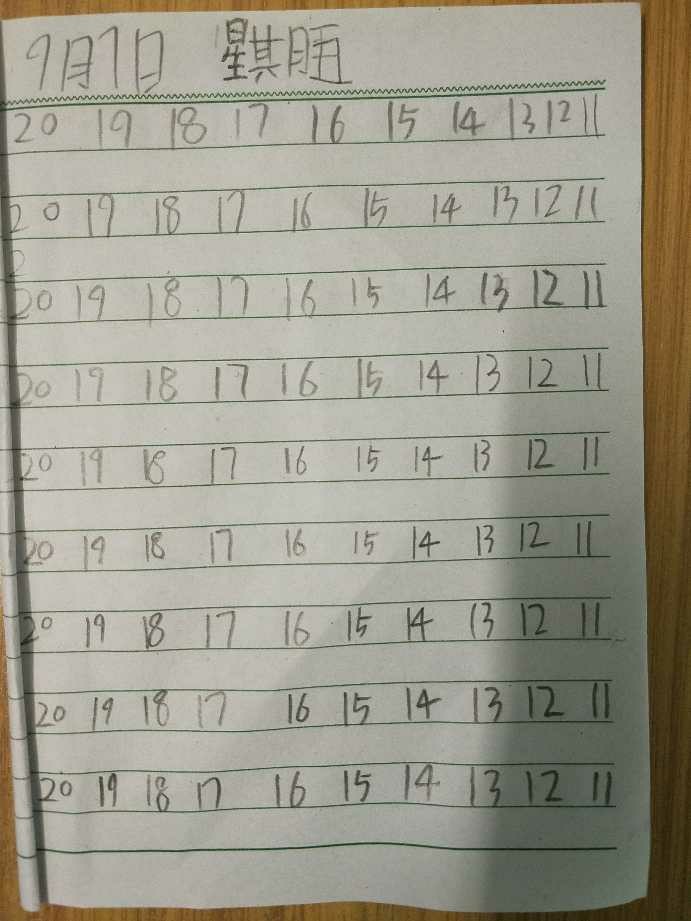 9月7日 星期五
20 19 18 17 16 15 14 13 12 11
20 19 18 17 16 15 14 13 12 11
2
20 19 18 17 16 15 14 13 12 11
20 19 18 17 16 15 14 13 12 11
20 19 18 17 16 15 14 13 12 11
20 19 18 17 16 15 14 13 12 11
20 19 18 17 16 15 14 13 12 11
20 19 18 17 16 15 14 13 12 11
20 19 18 17 16 15 14 13 12 11